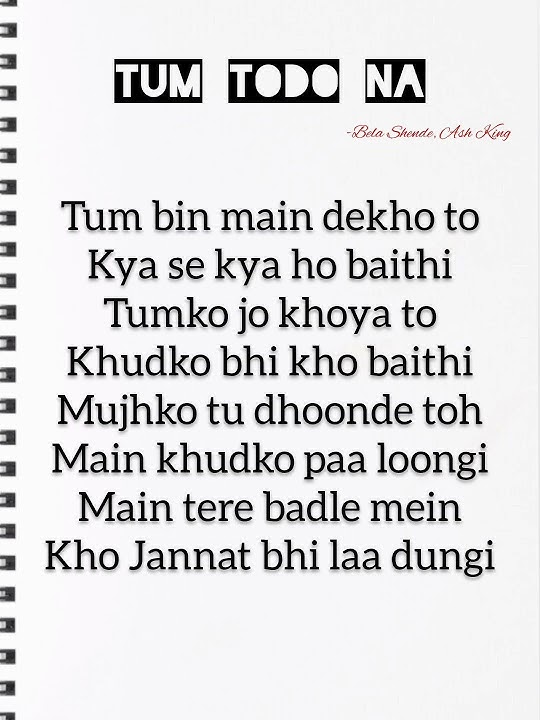 TUM TODO NA
-Bela Shende, Ash King
Tum bin main dekho to
Kya se kya ho baithi
Tumko jo khoya to
Khudko bhi kho baithi
Mujhko tu dhoonde toh
Main khudko paa loongi
Main tere badle mein
Kho Jannat bhi laa dungi